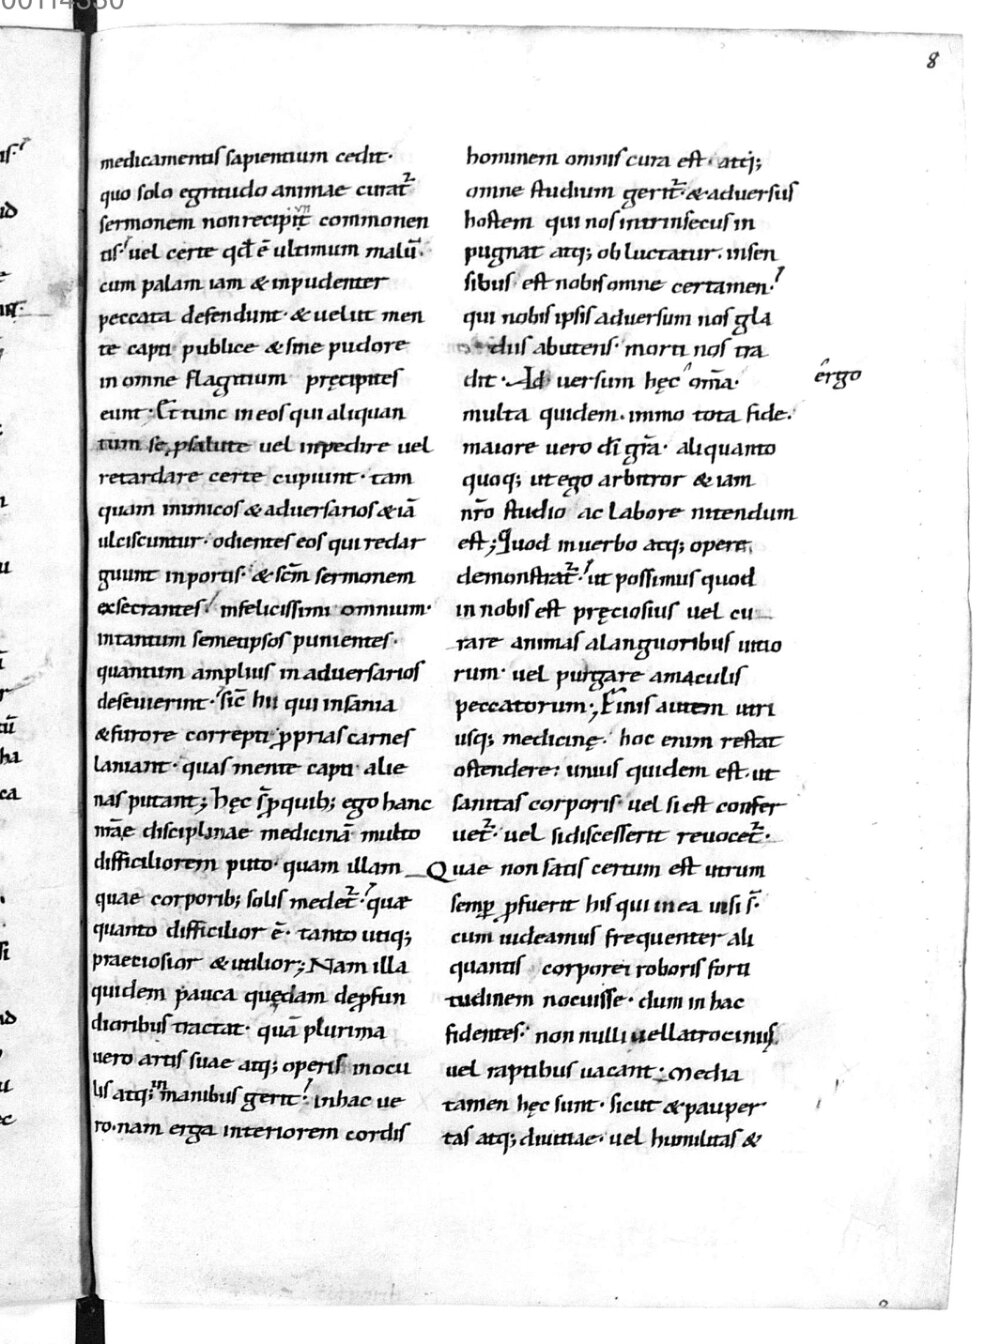 00114330
8
medicamentis sapientium cedit·
quo solo egritudo animae curat᷑
sermonem non recipit᷑ commonen
tis· uel certe qd̄ ē ultimum malū·
cum palam iam & inpudenter
peccata defendunt· & uelut men
te capti publice & sine pudore
in omne flagitium pręcipites
eunt· Et tunc in eos qui aliquan
tum se ꝓ salute uel inpedire uel
retardare certe cupiunt· tam
quam inimicos & aduersarios & iā
ulciscuntur· odientes eos qui redar
guunt in portis· & sc̄m sermonem
exsecrantes· infelicissimi omnium·
in tantum semetipsos punientes·
quantum amplius in aduersarios
deseuierint· sic̄ hii qui insania
& furore correpti ꝓprias carnes
laniant· quas mente capti alie
nas putant; hęc s̄ ꝓ quib; ego hanc
nr̄ae disciplinae medicinā multo
difficiliorem puto· quam illam
quae corporib; solis medet᷑· quae
quanto difficilior ē· tanto utiq;
praetiosior & utilior; Nam illa
quidem pauca quędam de ꝓfun
dioribus tractat· quā plurima
uero artis suae atq; operis in ocu
lis atq; in manibus gerit· in hac ue
ro· nam erga interiorem cordis
hominem omnis cura est· atq;
omne studium gerit᷑· & aduersus
hostem qui nos intrinsecus in
pugnat atq; obluctatur· insen
sibus est nobis omne certamen·
qui nobis ipsis aduersum nos gla
diis abutens· morti nos tra
dit· Ad uersum hęc om̄a·
ergo
multa quidem· immo tota fide·
maiore uero dī gr̄a· aliquanto
quoq; ut ego arbitror & iam
nr̄o studio ac labore nitendum
est; Quod in uerbo atq; opere
demonstrat᷑· ut possimus quod
in nobis est pręciosius uel cu
rare animas a languoribus uitio
rum· uel purgare a maculis
peccatorum·; Finis autem utri
usq; medicinę· hoc enim restat
ostendere: unius quidem est· ut
sanitas corporis· uel si est confer
uet᷑· uel si discesserit reuocet᷑·
Quae non satis certum est utrum
semꝑ ꝓfuerit his qui in ea uisi s̄·
cum uideamus frequenter ali
quantis corporei roboris forti
tudinem nocuisse· dum in hac
fidentes· non nulli uel latrociniis
uel raptibus uacant; Media
tamen hęc sunt· sicut & pauper
tas atq; diuitiae· uel humilitas &